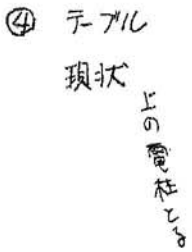 ④ テーブル
現状
上の電柱とる